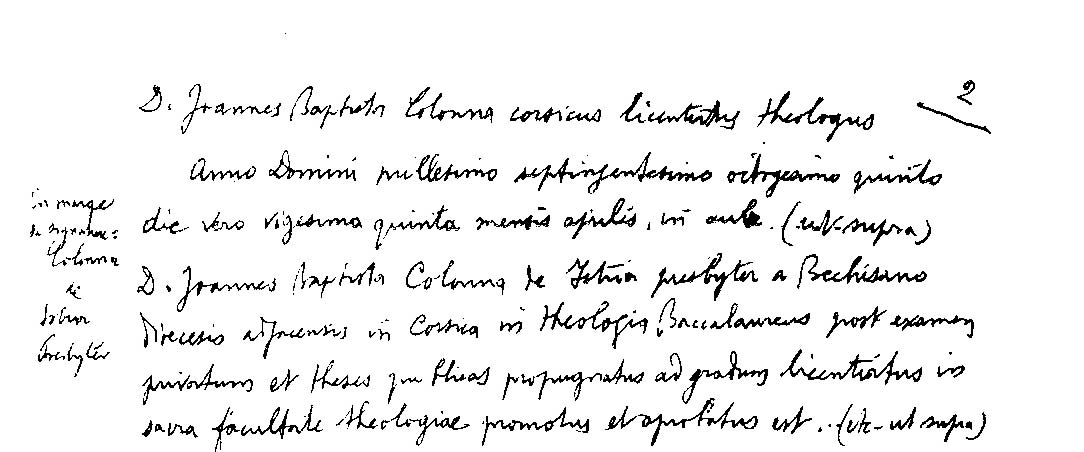 2
D. Joannes Baptista Colonna corsicus licentiatus theologus
Anno Domini millesimo septingentesimo octogesimo quinto
die vero vigesima quinta mensis aprilis, in aula. (ut supra)
D. Joannes Baptista Colonna de Istria presbyter a Bechisano
Diecesis adjacensis in Corsica in theologia Baccalaureus post examen
privatum et theses publicas propugnatas ad gradum licentiatus in
sacra facultate theologiae promotus et aprobatus est.. (etc - ut supra)
in marge
sa signature:
Colonna
de
Istria
Presbyter